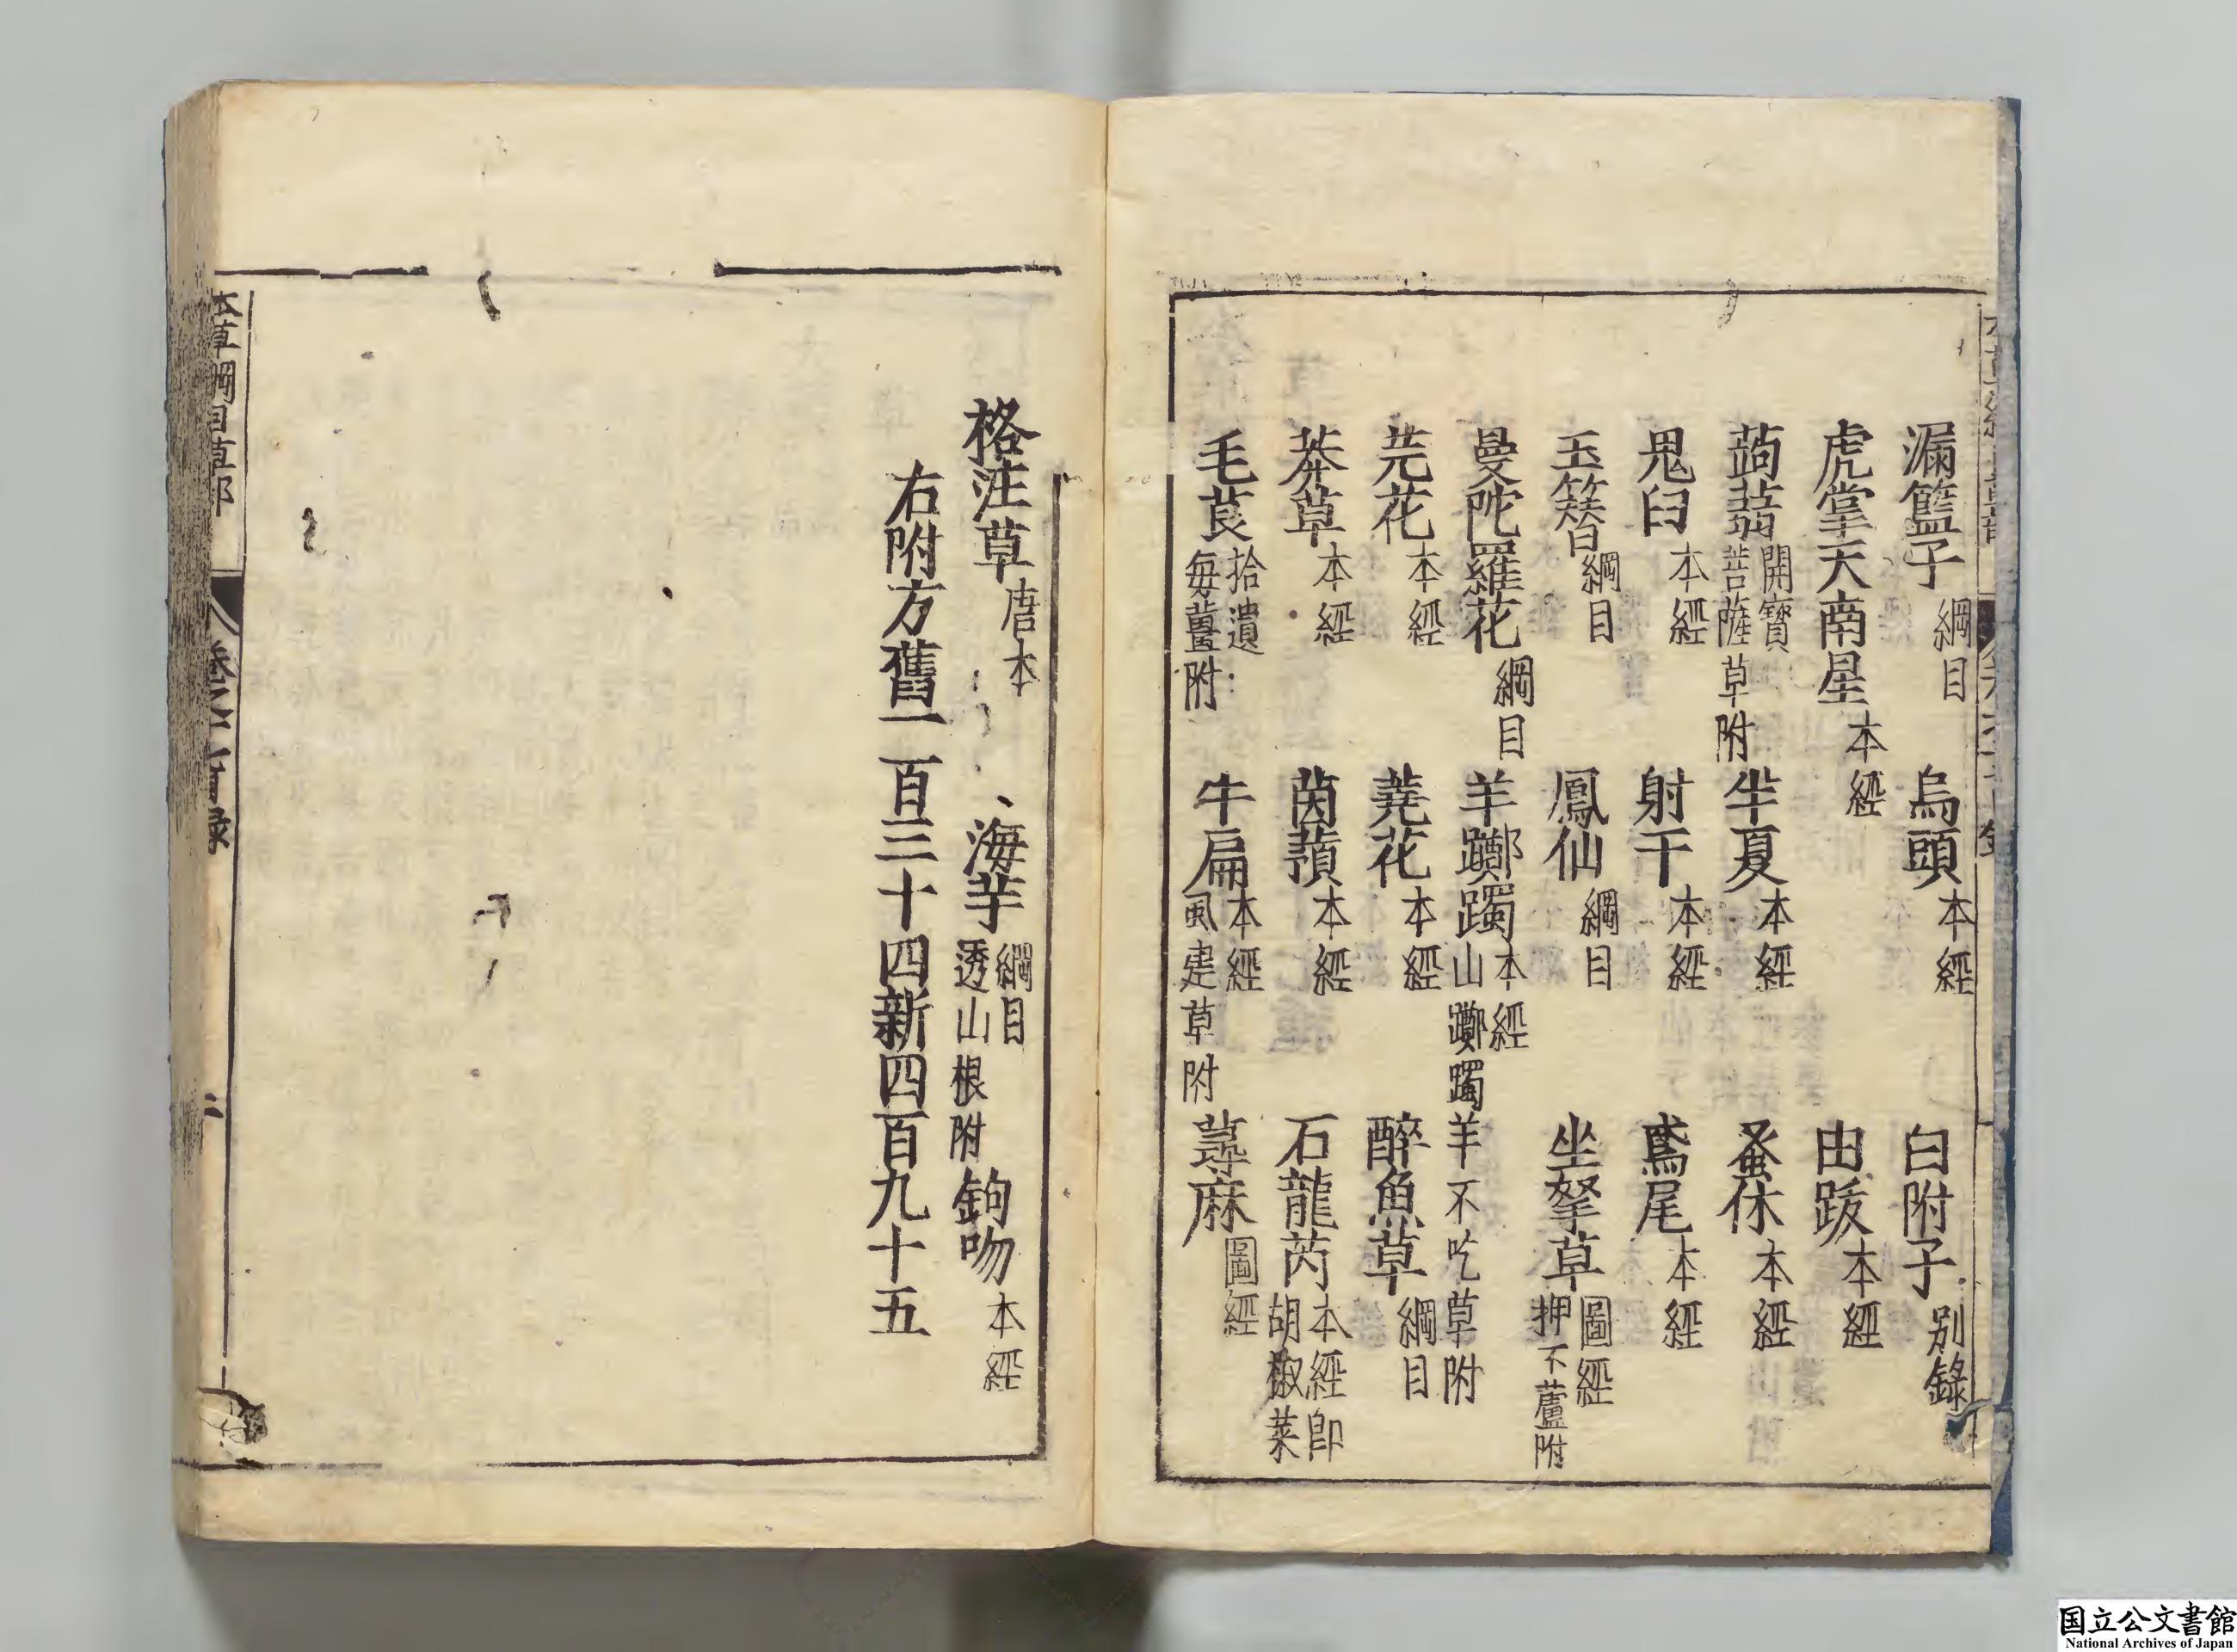 漏籃子 綱目 烏頭 本經 白附子 別錄
虎掌天南星 本經 由跋 本經
蒟蒻 開寶 菩薩草附 半夏 本經 蚤休 本經
鬼臼 本經 射干 本經 鳶尾 本經
玉簪 綱目 鳳仙 綱目 坐拏草 圖經 押不蘆附
曼陀羅花 綱目 羊躑躅 本經 山躑躅 羊不吃草附
芫花 本經 蕘花 本經 醉魚草 綱目
莽草 本經 茵蕷 本經 石龍芮 本經即 胡椒菜
毛茛 拾遺 每薑附 牛扁 本經 風建草附 蕁麻 圖經
格注草 唐本 海芋 綱目 透山根附 鉤吻 本經
右附方舊一百三十四新四百九十五
本草綱目草部 目錄
国立公文書館
National Archives of Japan